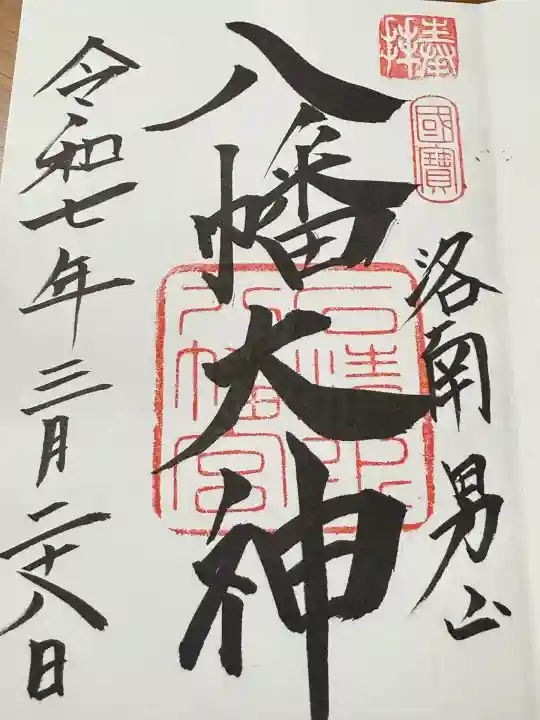 奉拝
國寶
洛南男山
八幡大神
石清水八幡宮
令和七年三月二十八日